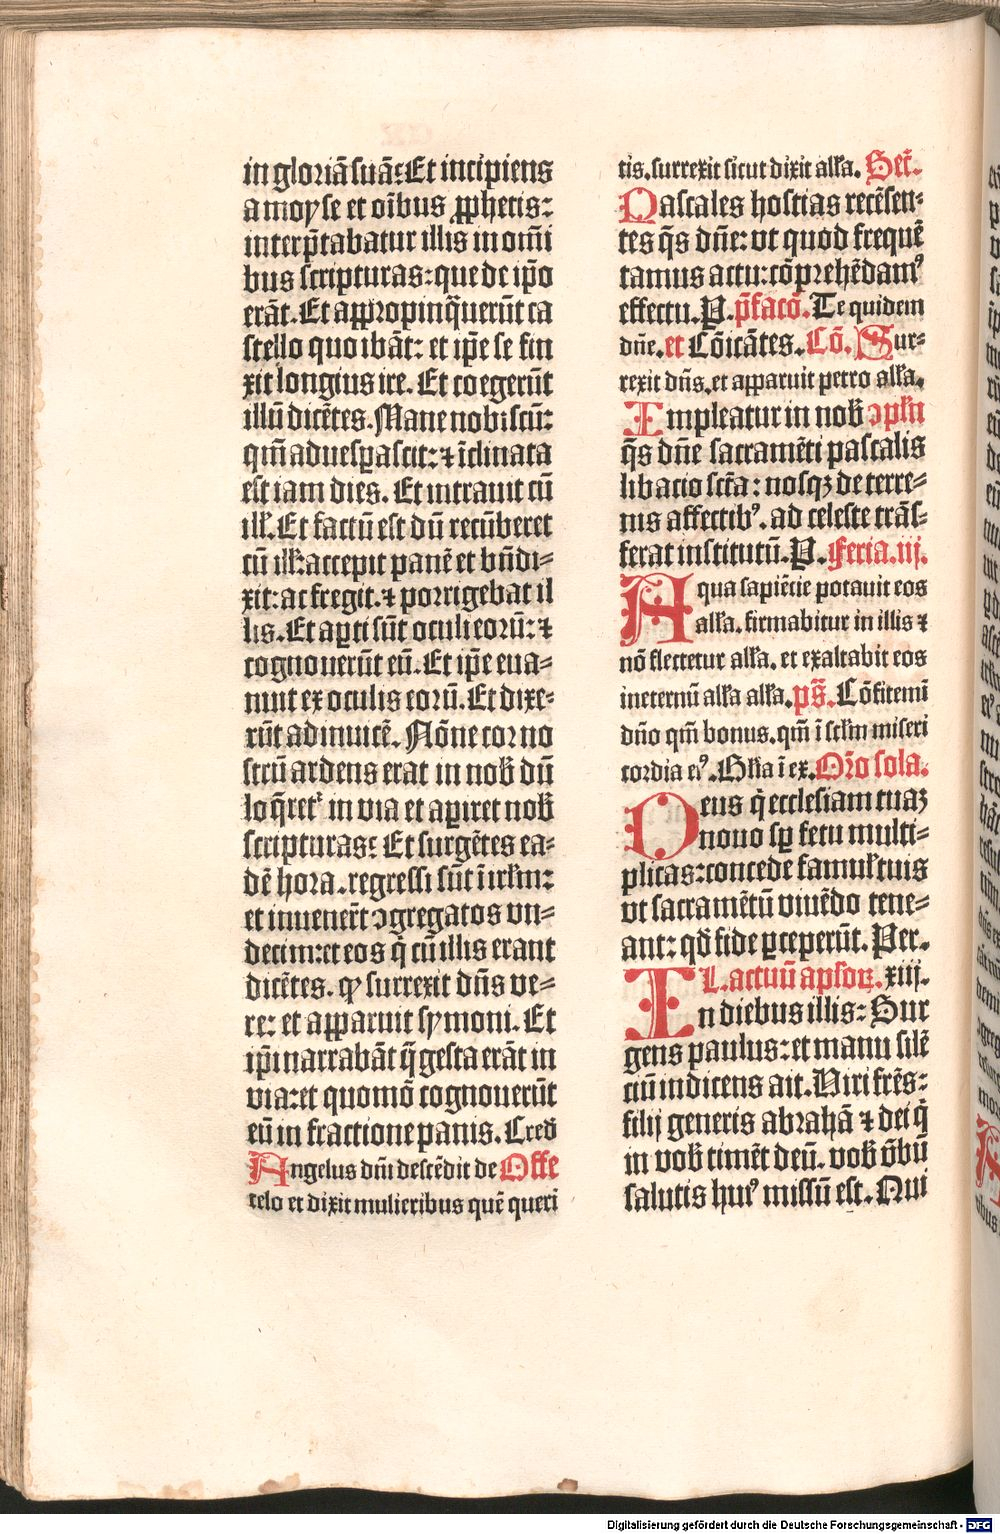 in gloriā suā: Et incipiens
a moyse et oībus ꝓphetis:
interp̄tabatur illis in om̄i
bus scripturas: que de ip̄o
erāt. Et appropinq̄uerūt ca
stello quo ibāt: et ip̄e se fin
xit longius ire. Et coegerūt
illū dicētes. Mane nobiscū:
qm̄ aduesꝑascit: ⁊ īclinata
est iam dies. Et intrauit cū
ill'. Et factū est dū recūberet
cū ill': accepit panē et bn̄di⸗
xit: ac fregit. ⁊ porrigebat il
lis. Et aꝑti sūt oculi eorū: ⁊
cognouerūt eū. Et ip̄e eua⸗
nuit ex oculis eorū. Et dixe⸗
rūt adinuicē. Nōne cor no
strū ardens erat in nob̄ dū
loq̄ret' in via et aꝑiret nob̄
scripturas: Et surgētes ea⸗
dē hora. regressi sūt ī irl'm:
et inuener̄t ↄgregatos vn⸗
decim: et eos q̄ cū illis erant
dicētes. ꝙ surrexit dn̄s ve⸗
re: et apparuit symoni. Et
ip̄i narrabāt q̄ gesta erāt in
via: et quomō cognouerūt
eū in fractione panis. Cred̄
Angelus dn̄i descēdit de Offe
celo et dixit mulieribus quē queri
tis. surrexit sicut dixit all'a. Sec̄.
Pascales hostias recēsen⸗
tes q̄s dn̄e: vt quod frequē
tamus actu: cōprehēdam⁹
effectu. P. p̄facō. Te quidem
dn̄e. et Cōicātes. Cō. Sur⸗
rexit dn̄s. et apparuit petro all'a.
Impleatur in nob̄ ↄpl'n
q̄s dn̄e sacramēti pascalis
libacio sct̄a: nosqꝫ de terre⸗
nis affectib⁹. ad celeste trās⸗
ferat institutū. P. Feria. iij.
Aqua sapiētie potauit eos
all'a. firmabitur in illis ⁊
nō flectetur all'a. et exaltabit eos
ineternū all'a all'a. ps̄. Cōfitemī
dn̄o qm̄ bonus. qm̄ ī scl'm miseri
cordia ei⁹. Gl'ia ī ex. Or̄o sola.
Deus q̄ ecclesiam tuaꝫ
nouo sꝑ fetu multi⸗
plicas: concede famul'tuis
vt sacramētū viuēdo tene⸗
ant: qd̄ fide ꝑceperūt. Per.
L. actuū apsoꝝ. xiij.
In diebus illis: Sur
gens paulus: et manu silē
ciū indicens ait. Viri fr̄es:
filij generis abrahā ⁊ dei q̄
in vob̄ timēt deū. vob̄ v̄bū
salutis hui⁹ missū est. Qui
Digitalisierung gefördert durch die Deutsche Forschungsgemeinschaft - DFG